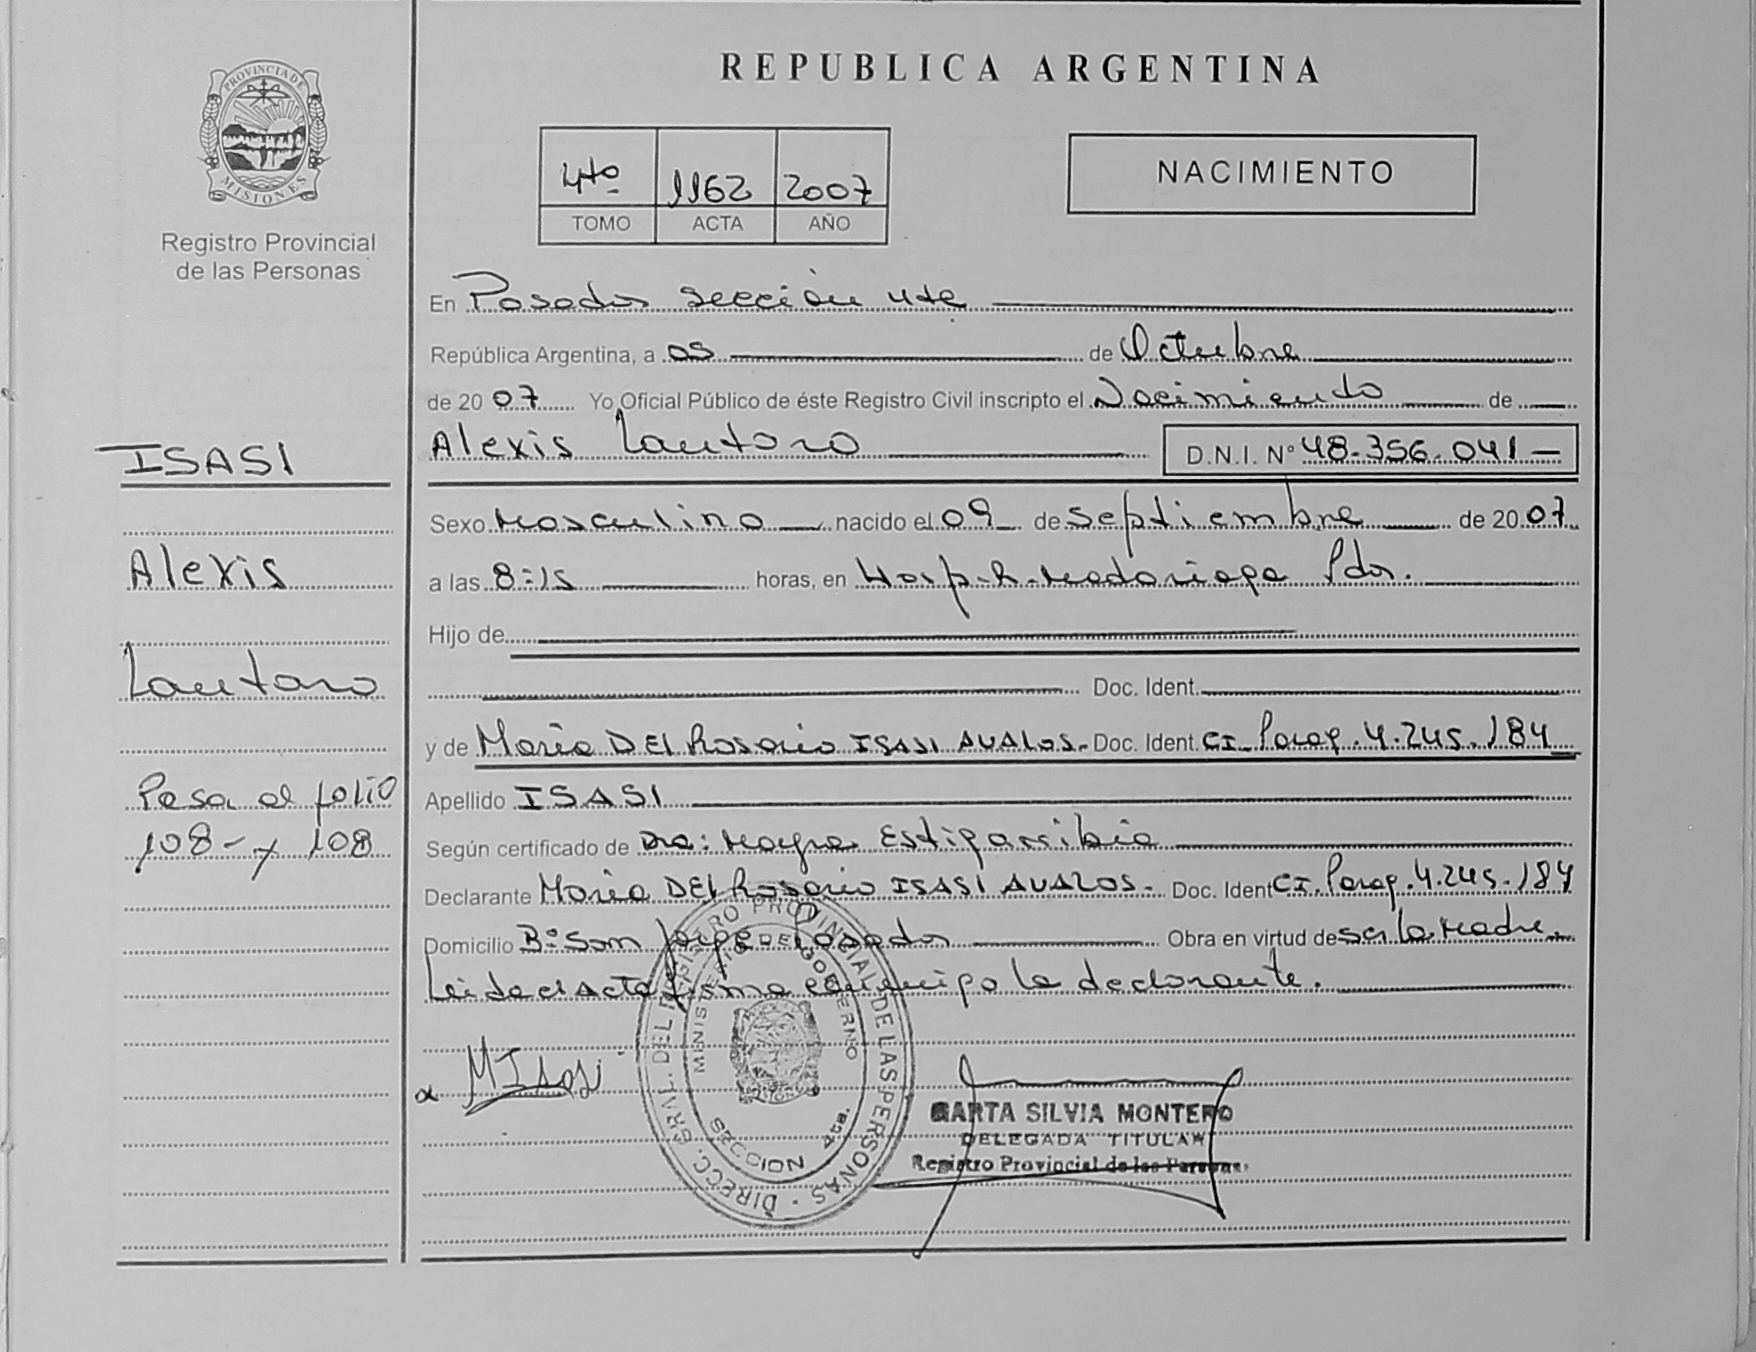 PROVINCIA DE
MISIONES
Registro Provincial
de las Personas
REPUBLICA ARGENTINA
4to 1162 2007
TOMO ACTA AÑO
NACIMIENTO
En Posadas sección 4ta
República Argentina, a 05 de Octubre
de 2007 Yo Oficial Público de éste Registro Civil inscripto el Nacimiento de
Alexis Lautaro D.N.I. N° 48.356.041-
Sexo Masculino nacido el 09 de Septiembre de 2007
a las 8:15 horas, en Hosp. R. Madariaga Pdas.
Hijo de
Doc. Ident.
y de María DEl Rosario ISASI AVALOS. Doc. Ident. CI. Parag. 4.245.184
Apellido ISASI
Según certificado de Dra: Mayra Estigarribia
Declarante María DEl Rosario ISASI AVALOS. Doc. Ident CI. Parag. 4.245.184
Domicilio B° San Jorge Posadas Obra en virtud de ser la Madre.
Leida el Acta firma conmigo la declarante.
ISASI
Alexis
Lautaro
Pasa al folio
108 - y 108
MIsasi
DIRECC. GRAL. DEL REGISTRO PROVINCIAL DE LAS PERSONAS
MINISTERIO DE GOBIERNO
SECCION 4ta.
MARTA SILVIA MONTERO
DELEGADA TITULAR
Registro Provincial de las Personas